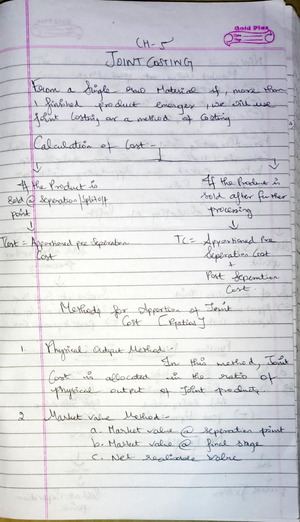 Gold Plus
CH-5
JOINT COSTING
From a Single Raw Material if, more than
1 finished product emerges, we will use
Joint Costing as a method of Costing
Calculation of Cost -
If the Product is
Sold @ Seperation/Splitoff
point
TCost = Apportioned pre Seperation
Cost
If the Product is
sold after further
processing
TC = Apportioned Pre
Seperation Cost
+
Post Seperation
Cost.
Methods for Apportion of Joint
Cost
1. Physical Output Method:-
In this method, Joint
Cost is allocated in the ratio of
physical output of Joint products
2 Market Value Method:-
a. Market value @ seperation point
b. Market value @ final stage
c. Net realisable value